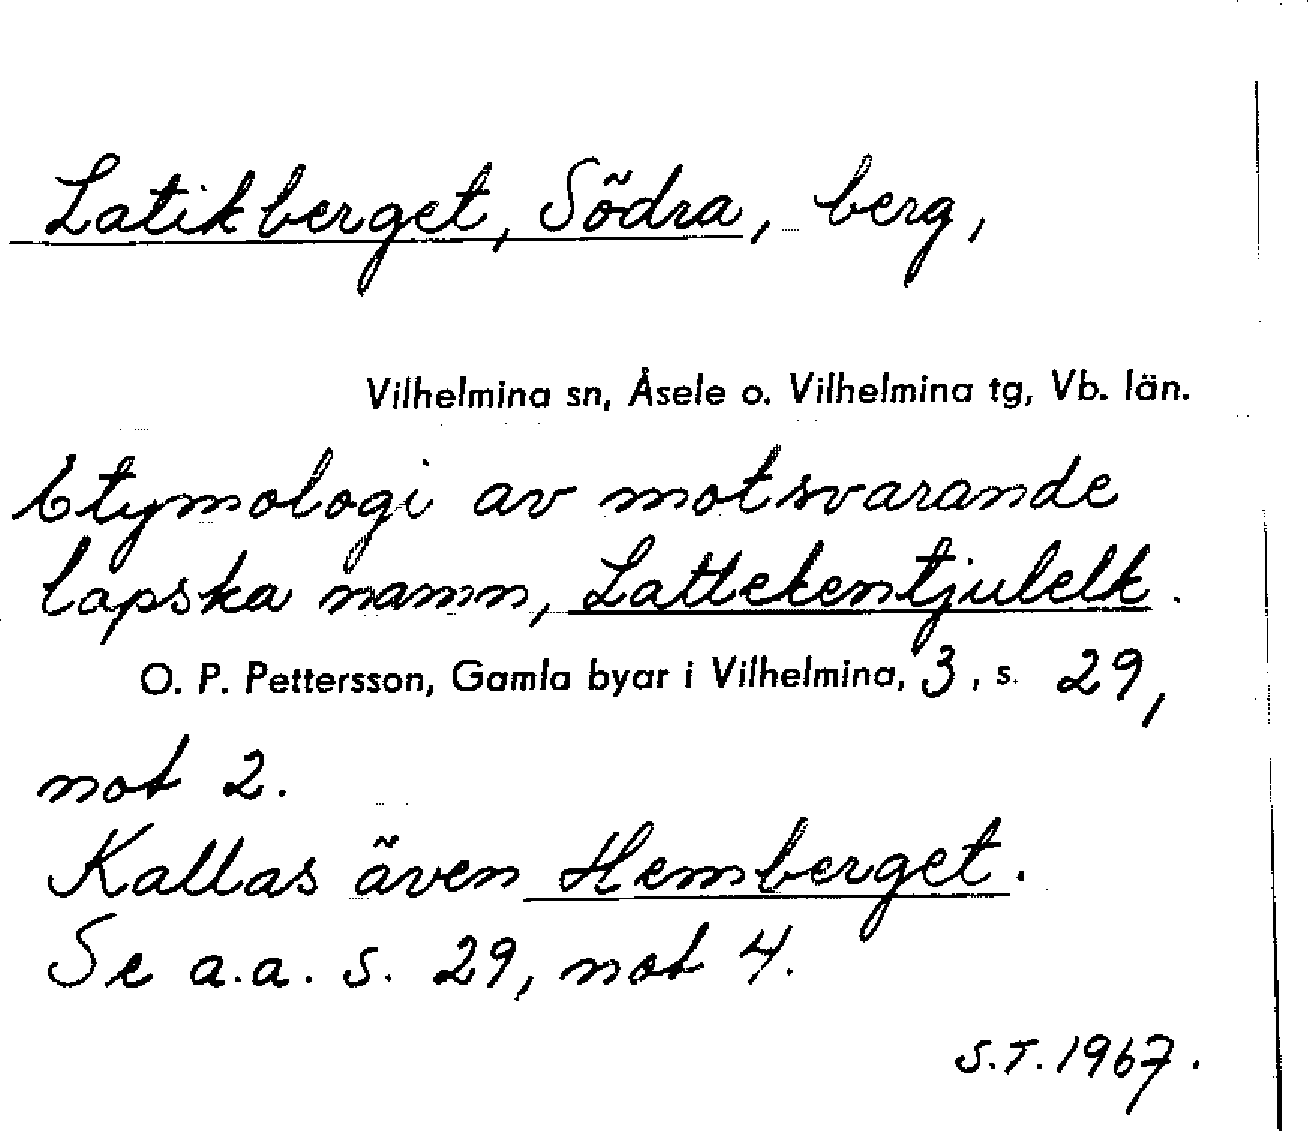 Latikberget, Södra, berg,
Vilhelmina sn, Åsele o. Vilhelmina tg, Vb. län.
Etymologi av motsvarande
lapska namn, Lattekentjulelk.
O. P. Pettersson, Gamla byar i Vilhelmina, 3, s. 29,
not 2.
Kallas även Hemberget.
Se a.a. s. 29, not 4.
S.T. 1967.